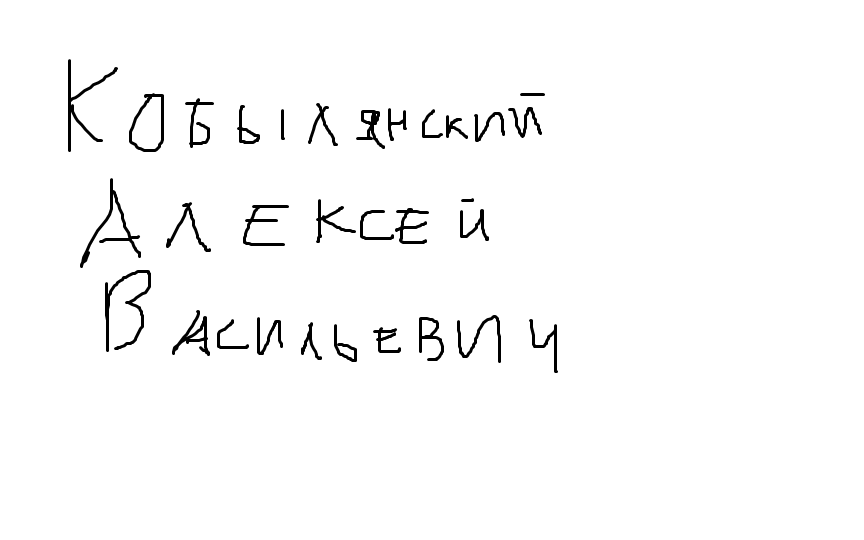 Кобылянский
Алексей
Васильевич